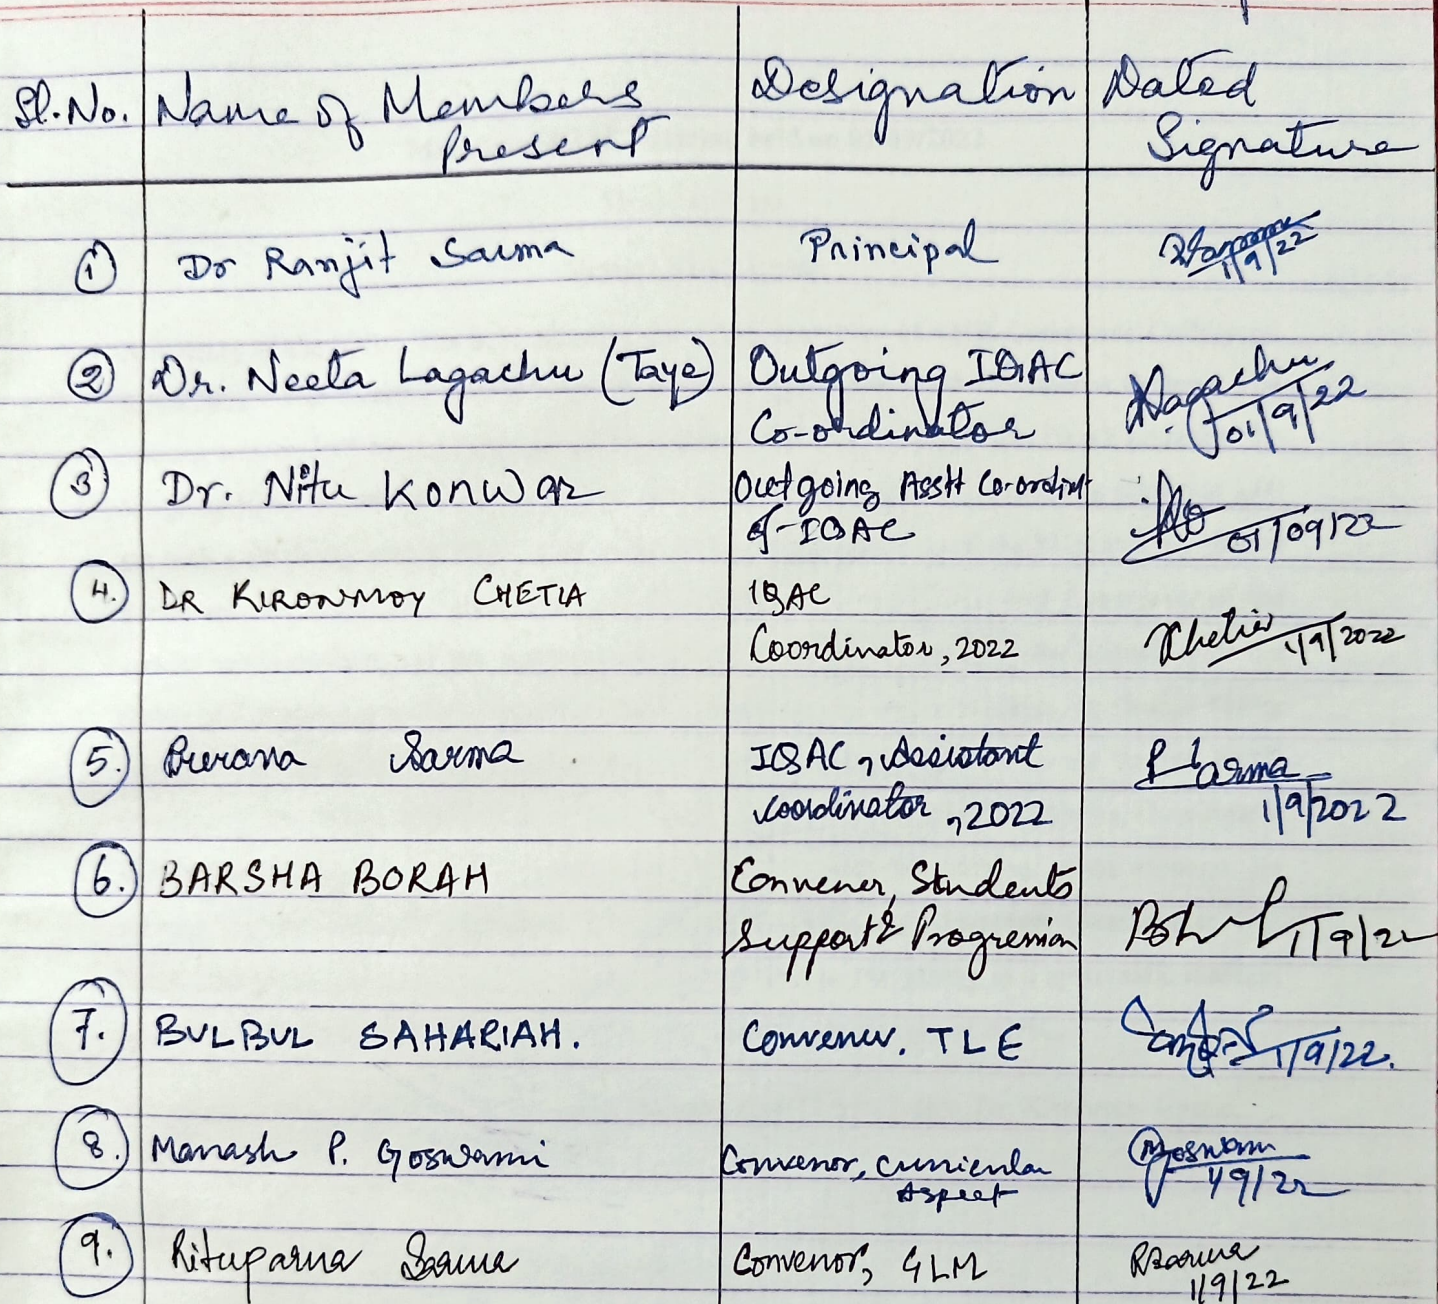 Sl.No. Name of Members Designation Dated
Present Signature
1 Dr Ranjit Sarma Principal
1/9/22
2 Dr. Neeta Lagachu (Taye) Outgoing IQAC Lagachu
Co-ordinator 01/9/22
3 Dr. Nitu Konwar Outgoing Asstt Co-ordinat
of IQAC 01/09/22
4. DR KIRONMOY CHETIA IQAC
Coordinator, 2022 Khetia 1/9/2022
5. Purana Sarma IQAC, Assistant P Sarma
Coordinator, 2022 1/9/2022
6. BARSHA BORAH Convener, Students
Support & Progression 1/9/22
7. BULBUL SAHARIAH. Convener. TLE 1/9/22.
8. Manash P. Goswami Convenor, Curricular Goswami
Aspect 1/9/22
9. Rituparna Sarma Convenor, GLM RSarma
1/9/22